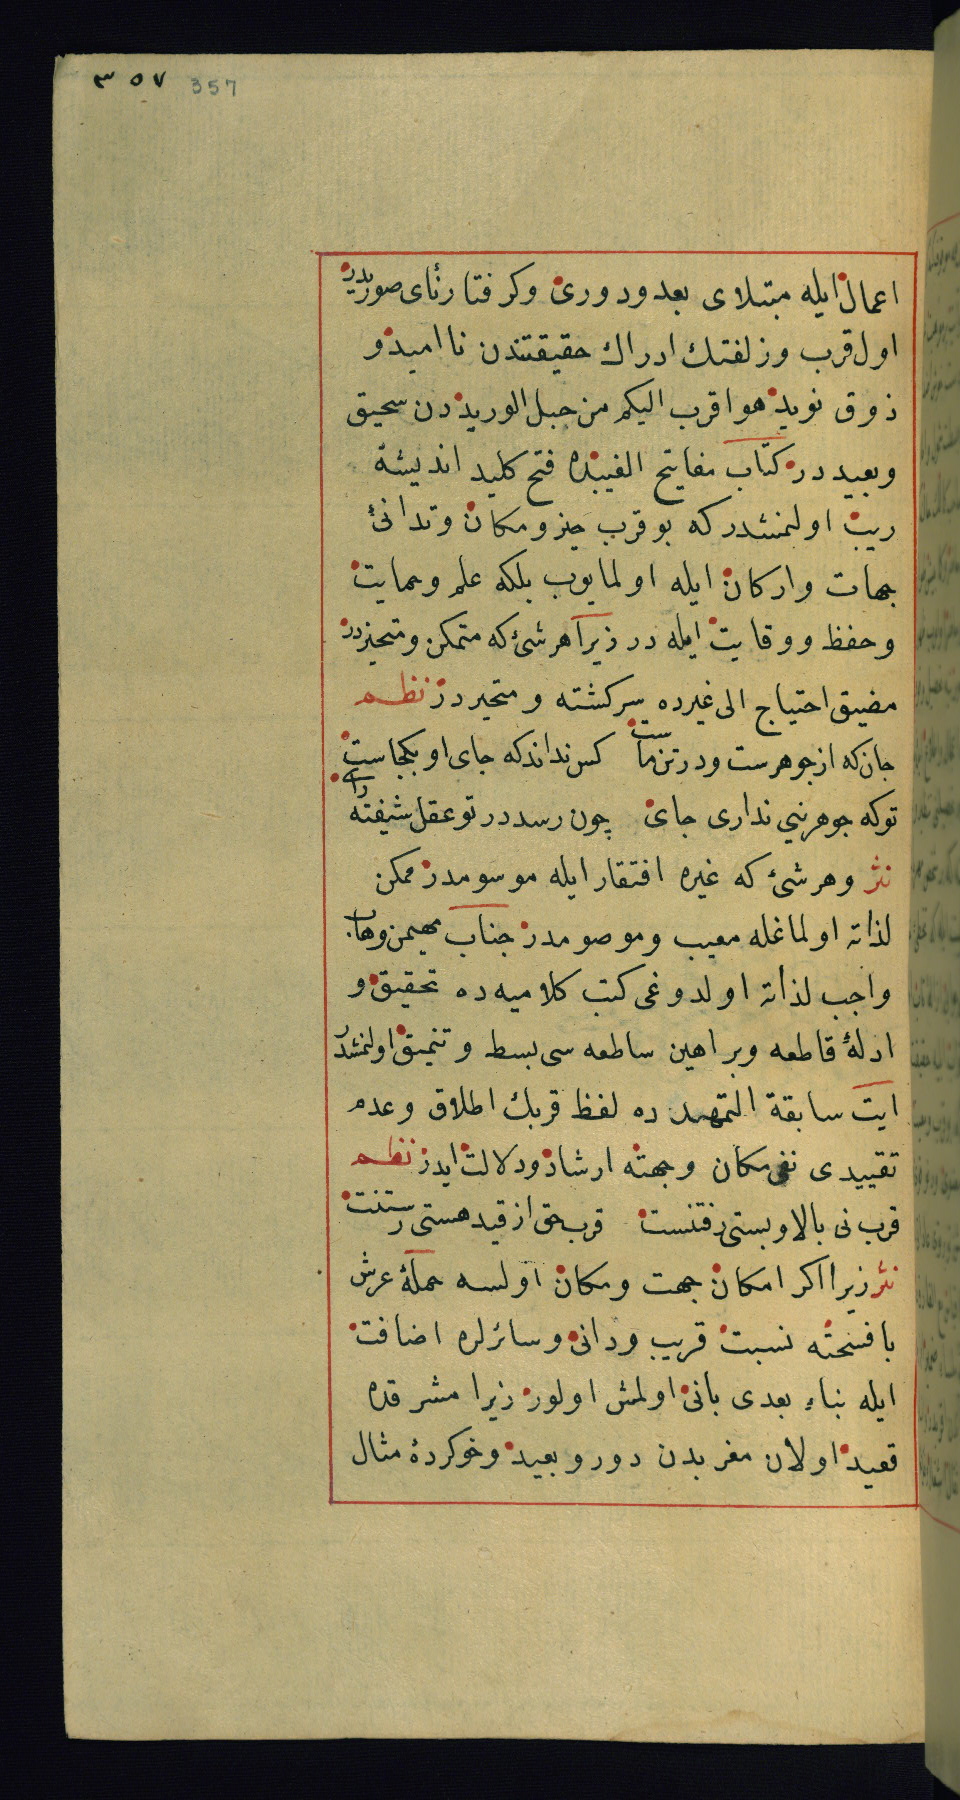 ٣٥٧ 357
اعمال ايله مبتلاى بعد ودورى وكرفتار نأى صوريدر
اول قرب وزلفتك ادراك حقيقتندن نااميد و
ذوق نويد هو اقرب اليكم من حبل الوريد دن سحيق
وبعيد در كتاب مفاتيح الغيبده فتح كليد انديشهٔ
ريب اولنمشدر كه بو قرب حيز ومكان وتدانئ
جهات واركان ايله اولمايوب بلكه علم وحمايت
وحفظ ووقايت ايله در زيرا هر شئ كه متمكن ومتحيزدر
مضيق احتياج الى غيرده سركشته ومتحيردر نظم
جان كه از جوهرست ودر تن ماست كس نداند كه جاى او بكجاست
توكه جوهر نيى ندارى جاى چون رسد در تو عقل شيفته راى
نثر وهر شئ كه غيره افتقار ايله موسومدر ممكن
لذاته اولماغله معيب وموصومدر جناب مهيمن وهاب
واجب لذاته اولدوغى كتب كلاميه ده تحقيق و
ادلهٔ قاطعه وبراهين ساطعه سى بسط وتنميق اولنمشدر
ايت سابقة التمهيد ده لفظ قربك اطلاق وعدم
تقييدى نفى مكان وجهته ارشاد ودلالت ايدر نظم
قرب نى بالا وپستى رفتنست قرب حق از قيد هستى رستنست
نثر زيرا اكر امكان جهت ومكان اولسه حملهٔ عرش
بافسحته نسبت قريب ودانى وسائرلره اضافت
ايله بناء بعدى بانى اولمش اولور زيرا مشرقده
قعيد اولان مغربدن دور وبعيد وخوكردهٔ مثال